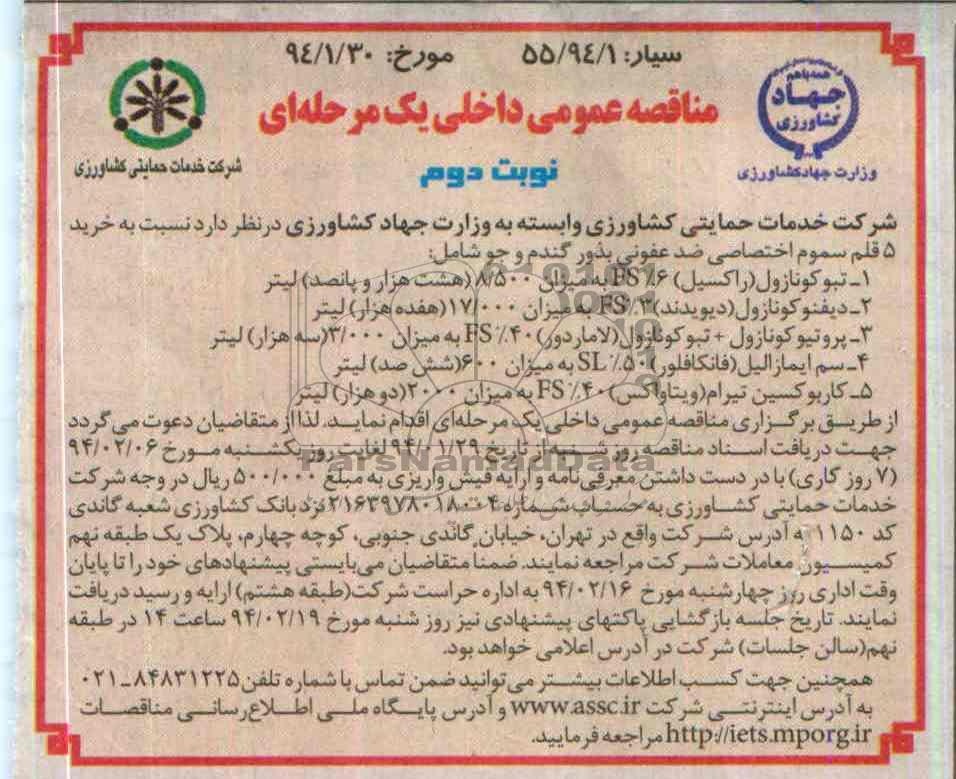 سیار: ۵۵/۹٤/۱ مورخ: ۹٤/۱/۳۰
همه باهم
جهاد
کشاورزی
وزارت جهادکشاورزی
مناقصه عمومی داخلی یک مرحله‌ای
نوبت دوم
شرکت خدمات حمایتی کشاورزی
شرکت خدمات حمایتی کشاورزی وابسته به وزارت جهاد کشاورزی درنظر دارد نسبت به خرید
۵ قلم سموم اختصاصی ضد عفونی بذور گندم و جو شامل:
۱ـ تبوکونازول(راکسیل) ۶٪ FS به میزان ۸/۵۰۰(هشت هزار و پانصد) لیتر
۲ـ دیفنوکونازول(دیویدند)۳٪ FS به میزان ۱۷/۰۰۰(هفده هزار) لیتر
۳ـ پروتیوکونازول + تبوکونازول(لاماردور)۴۰٪ FS به میزان ۳/۰۰۰(سه هزار) لیتر
۴ـ سم ایمازالیل(فانکافلور)۵۰٪ SL به میزان ۶۰۰(شش صد) لیتر
۵ـ کاربوکسین تیرام(ویتاواکس)۴۰٪ FS به میزان ۲۰۰۰(دو هزار) لیتر
از طریق برگزاری مناقصه عمومی داخلی یک مرحله‌ای اقدام نماید. لذا از متقاضیان دعوت می گردد
جهت دریافت اسناد مناقصه روز شنبه از تاریخ ۹۴/۰۱/۲۹ لغایت روز یکشنبه مورخ ۹۴/۰۲/۰۶
(۷ روز کاری) با در دست داشتن معرفی‌نامه و ارایه فیش واریزی به مبلغ ۵۰۰/۰۰۰ ریال در وجه شرکت
خدمات حمایتی کشاورزی به حساب شماره ۲۱۶۳۹۷۸۰۱۸۰۰۴ نزد بانک کشاورزی شعبه گاندی
کد ۱۱۵۰ به آدرس شرکت واقع در تهران، خیابان گاندی جنوبی، کوچه چهارم، پلاک یک طبقه نهم
کمیسیون معاملات شرکت مراجعه نمایند. ضمنا متقاضیان می‌بایستی پیشنهادهای خود را تا پایان
وقت اداری روز چهارشنبه مورخ ۹۴/۰۲/۱۶ به اداره حراست شرکت(طبقه هشتم) ارایه و رسید دریافت
نمایند. تاریخ جلسه بازگشایی پاکتهای پیشنهادی نیز روز شنبه مورخ ۹۴/۰۲/۱۹ ساعت ۱۴ در طبقه
نهم(سالن جلسات) شرکت در آدرس اعلامی خواهد بود.
همچنین جهت کسب اطلاعات بیشتر می‌توانید ضمن تماس با شماره تلفن۸۴۸۳۱۲۲۵ـ۰۲۱
به آدرس اینترنتی شرکت www.assc.ir و آدرس پایگاه ملی اطلاع‌رسانی مناقصات
http://iets.mporg.ir مراجعه فرمایید.
ParsNamadData